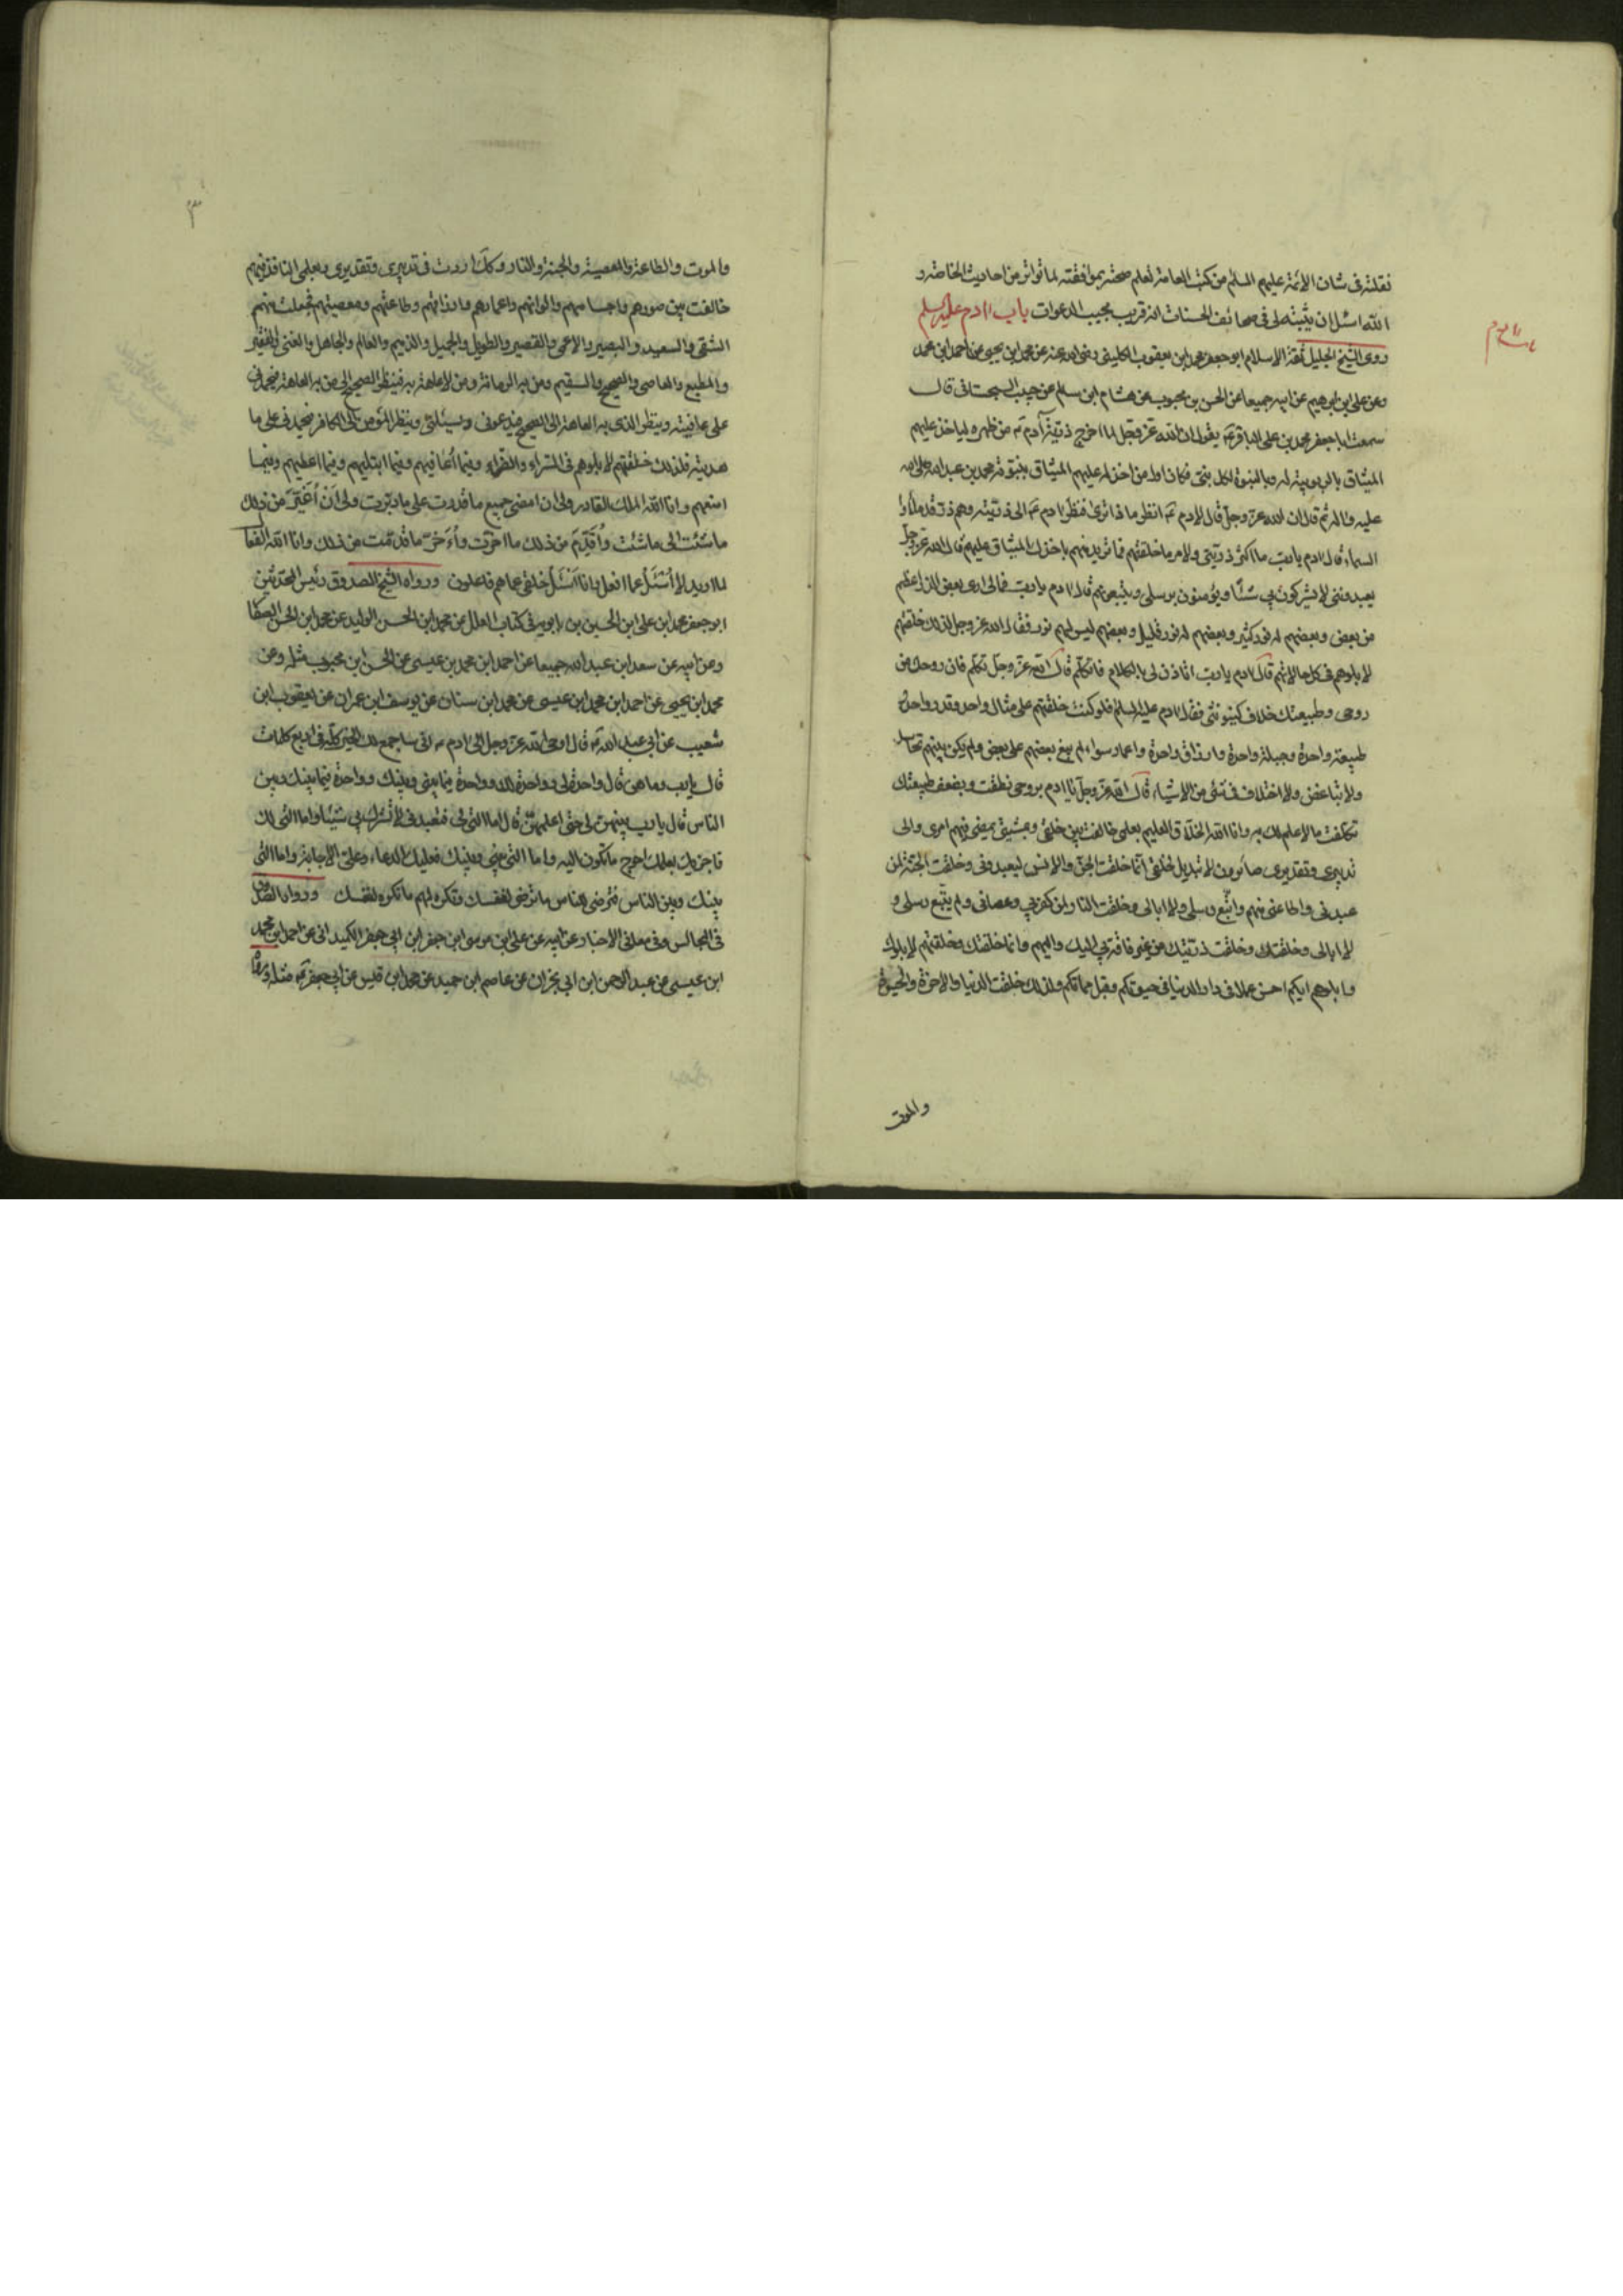 نقلته فى شان الائمة عليهم السلم من كتب العامة لتعلم صحته بموافقته لما تواتر من احاديث الخاصة و
الله اسئل ان يثبته لى فى صحائف الحسنات انه قريب مجيب الدعوات باب ادم عليه السلم
روى الشيخ الجليل ثقة الاسلام ابو جعفر محمد ابن يعقوب الكلينى رضى الله عنه عن محمد ابن يحيى عن احمد ابن محمد
وعن على ابن ابرهيم عن ابيه جميعا عن الحسن بن محبوب عن هشام ابن سالم عن حبيب السجستانى قال
سمعت ابا جعفر محمد بن على الباقر ع يقول ان الله عز وجل لما اخرج ذرية آدم ع من ظهره لياخذ عليهم
الميثاق بالربوبية له وبالنبوة لكل نبى فكان اول من اخذ له عليهم الميثاق بنبوته محمد بن عبد الله صلى الله
عليه واله ثم قال ان الله عز وجل قال لادم ع انظر ما ذا ترى فنظر ادم ع الى ذريته وهم ذر قد ملاوا
السماء قال ادم يا رب ما اكثر ذريتى ولامر ما خلقتهم فما تريد منهم باخذك الميثاق عليهم قال الله عز وجل
يعبدوننى لا يشركون بى شيئا ويؤمنون برسلى ويتبعونهم قال ادم يا رب فمالى ارى بعض الذر اعظم
من بعض وبعضهم له نور كثير وبعضهم له نور قليل وبعضهم ليس لهم نور فقال الله عز وجل لذلك خلقتهم
لابلوهم فى كل حالاتهم قال ادم يا رب اتاذن لى بالكلام فاتكلم قال الله عز وجل تكلم فان روحك من
روحى وطبيعتك خلاف كينونتى فقال ادم عليه السلم فلو كنت خلقتهم على مثال واحد وقدر واحد و
طبيعة واحدة وجبلة واحدة وارزاق واحدة واعمار سواء لم يبغ بعضهم على بعض ولم يكن بينهم تحاسد
ولا تباغض ولا اختلاف فى شئ من الاشياء قال الله عز وجل يا ادم بروحى نطقت وبضعف طبيعتك
تكلفت مالا علم لك به وانا الله الخلاق العليم بعلمى خالفت بين خلقى وبمشيتى يمضى فيهم امرى والى
تدبيرى وتقديرى صائرون لا تبديل لخلقى انما خلقت الجن والانس ليعبدونى وخلقت الجنة لمن
عبدنى واطاعنى منهم واتبع رسلى ولا ابالى وخلقت النار لمن كفر بى وعصانى ولم يتبع رسلى و
لا ابالى وخلقتك وخلقت ذريتك من غير فاقة بى اليك واليهم وانما خلقتك وخلقتهم لابلوك
وابلوهم ايكم احسن عملا فى دار الدنيا فى حيوتكم وقبل مماتكم ولذلك خلقت الدنيا والاخرة والحيوة
والموت
٣
والموت والطاعة والمعصية والجنة والنار وكذلك اردت فى تدبيرى وتقديرى وبعلمى النافذ فيهم
خالفت بين صورهم واجسامهم والوانهم واعمارهم وارزاقهم وطاعتهم ومعصيتهم فجعلت منهم
الشقى والسعيد والبصير والاعمى والقصير والطويل والجميل والذميم والعالم والجاهل والغنى والفقير
والمطيع والعاصى والصحيح والسقيم ومن به الزمانة ومن لا عاهة به فينظر الصحيح الى من به العاهة فيحمدنى
على عافيته وينظر الذى به العاهة الى الصحيح فيدعونى ويسئلنى وينظر المؤمن الى الكافر فيحمدنى على ما
هديته فلذلك خلقتهم لابلوهم فى السراء والضراء وفيما اعافيهم وفيما ابتليهم وفيما اعطيهم وفيما
امنعهم وانا الله الملك القادر ولى ان امضى جميع ما قدرت على ما دبرت ولى ان اغير من ذلك
ما شئت الى ما شئت واقدم من ذلك ما اخرت واؤخر ما قدمت من ذلك وانا الله الفعال
لما اريد لا اسئل عما افعل وانا اسئل خلقى عما هم فاعلون ورواه الشيخ الصدوق رئيس المحدثين
ابو جعفر محمد ابن على ابن الحسين بن بابويه فى كتاب العلل عن محمد ابن الحسن الوليد عن محمد ابن الحسن الصفار
وعن ابيه عن سعد ابن عبد الله جميعا عن احمد ابن محمد بن عيسى عن الحسن ابن محبوب مثله وعن
محمد ابن يحيى عن احمد ابن محمد ابن عيسى عن محمد ابن سنان عن يوسف ابن عمران عن يعقوب ابن
شعيب عن ابى عبد الله ع قال اوحى الله عز وجل الى ادم ع انى ساجمع لك الخير كله فى اربع كلمات
قال يا رب وما هن قال واحدة لى وواحدة لك وواحدة فيما بينى وبينك وواحدة فيما بينك وبين
الناس قال يا رب بينهن لى حتى اعلمهن قال اما التى لى فتعبدنى لا تشرك بى شيئا واما التى لك
فاجزيك بعملك احوج ما تكون اليه واما التى بينى وبينك فعليك الدعاء وعلى الاجابة واما التى
بينك وبين الناس فترضى للناس ما ترضى لنفسك وتكره لهم ما تكره لنفسك ورواه الصدوق
فى المجالس وفى معانى الاخبار عن ابيه عن على ابن موسى ابن جعفر ابن ابى جعفر الكميدانى عن احمد ابن محمد
ابن عيسى عن عبد الرحمن ابن ابى نجران عن عاصم ابن حميد عن محمد ابن قيس عن ابى جعفر ع مثله ورواه